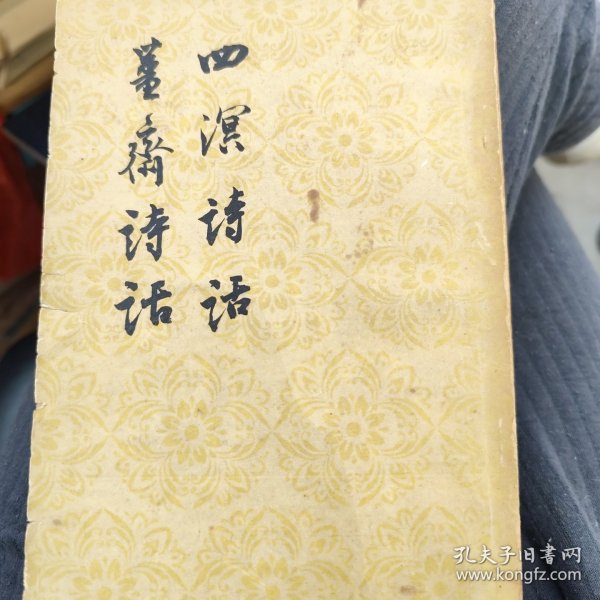 四溟诗话
薑齋诗话
孔夫子旧书网
www.kongfz.com